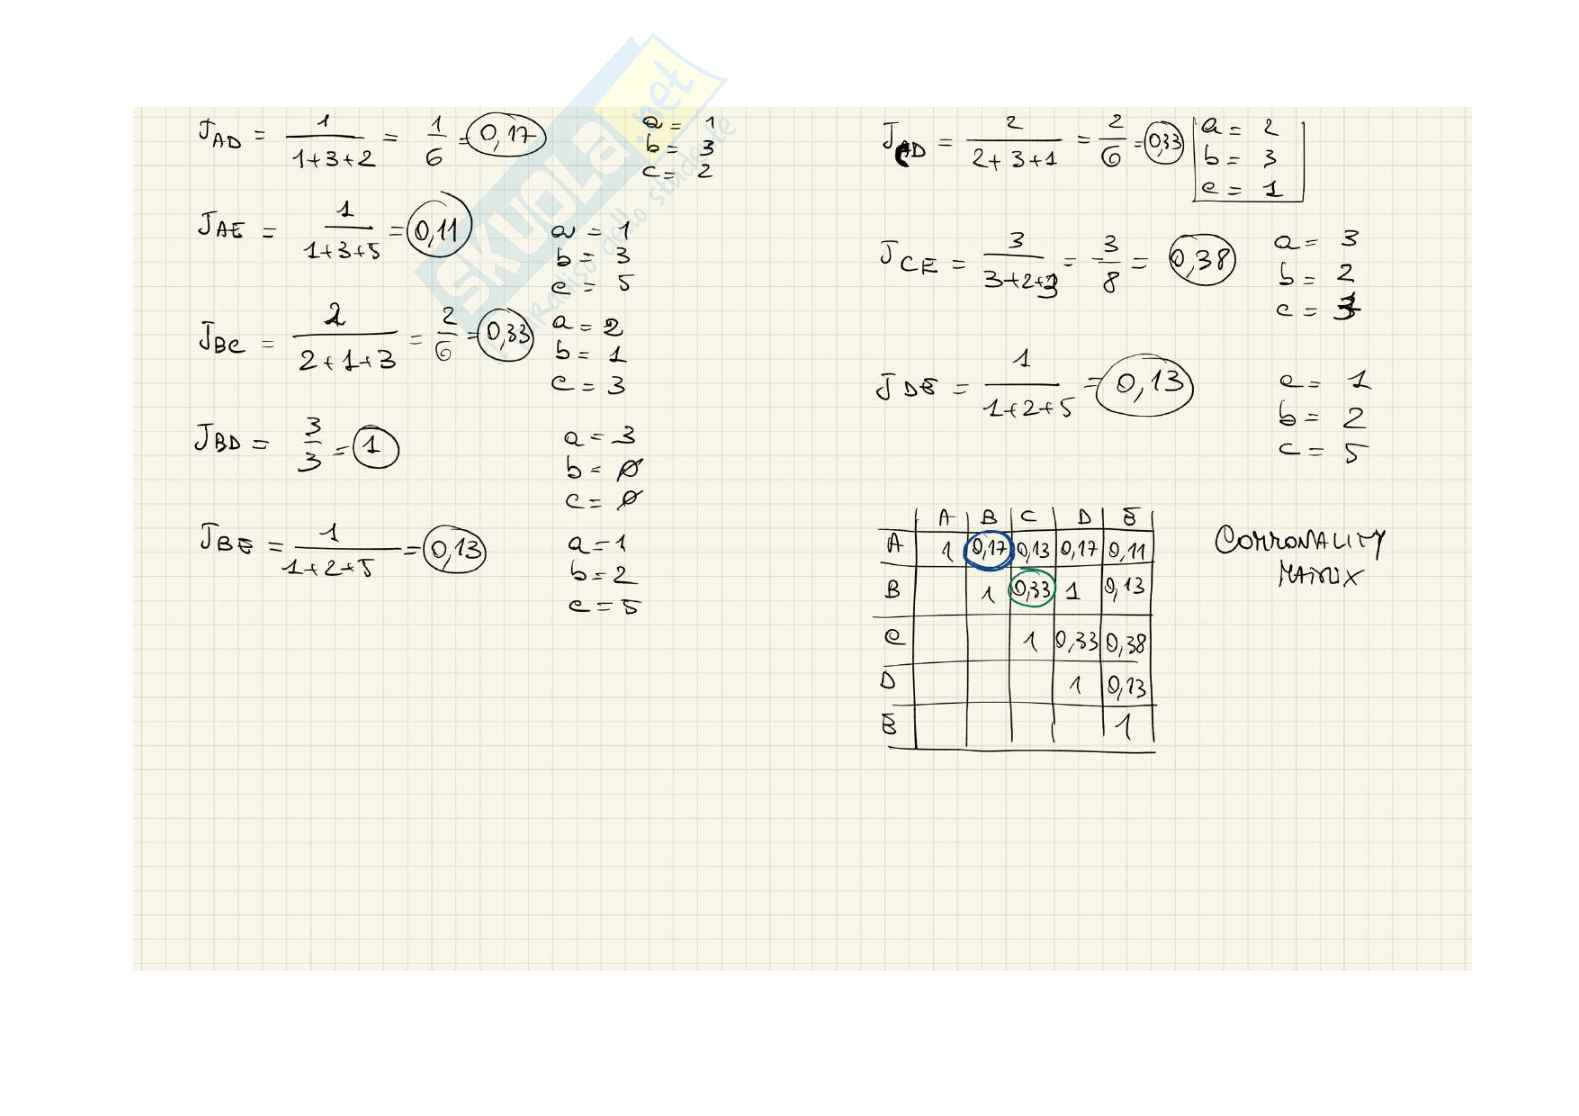 J_AD = 1/(1+3+2) = 1/6 = 0,17
a = 1
b = 3
c = 2
J_AE = 1/(1+3+5) = 0,11
a = 1
b = 3
c = 5
J_BC = 2/(2+1+3) = 2/6 = 0,33
a = 2
b = 1
c = 3
J_BD = 3/3 = 1
a = 3
b = 0
c = 0
J_BE = 1/(1+2+5) = 0,13
a = 1
b = 2
c = 5
J_CD = 2/(2+3+1) = 2/6 = 0,33
a = 2
b = 3
c = 1
J_CE = 3/(3+2+3) = 3/8 = 0,38
a = 3
b = 2
c = 3
J_DE = 1/(1+2+5) = 0,13
a = 1
b = 2
c = 5
A B C D E
A 1 0,17 0,13 0,17 0,11
B 1 0,33 1 0,13
C 1 0,33 0,38
D 1 0,13
E 1
COMMONALITY
MATRIX
SKUOLA.net
paradiso dello studente